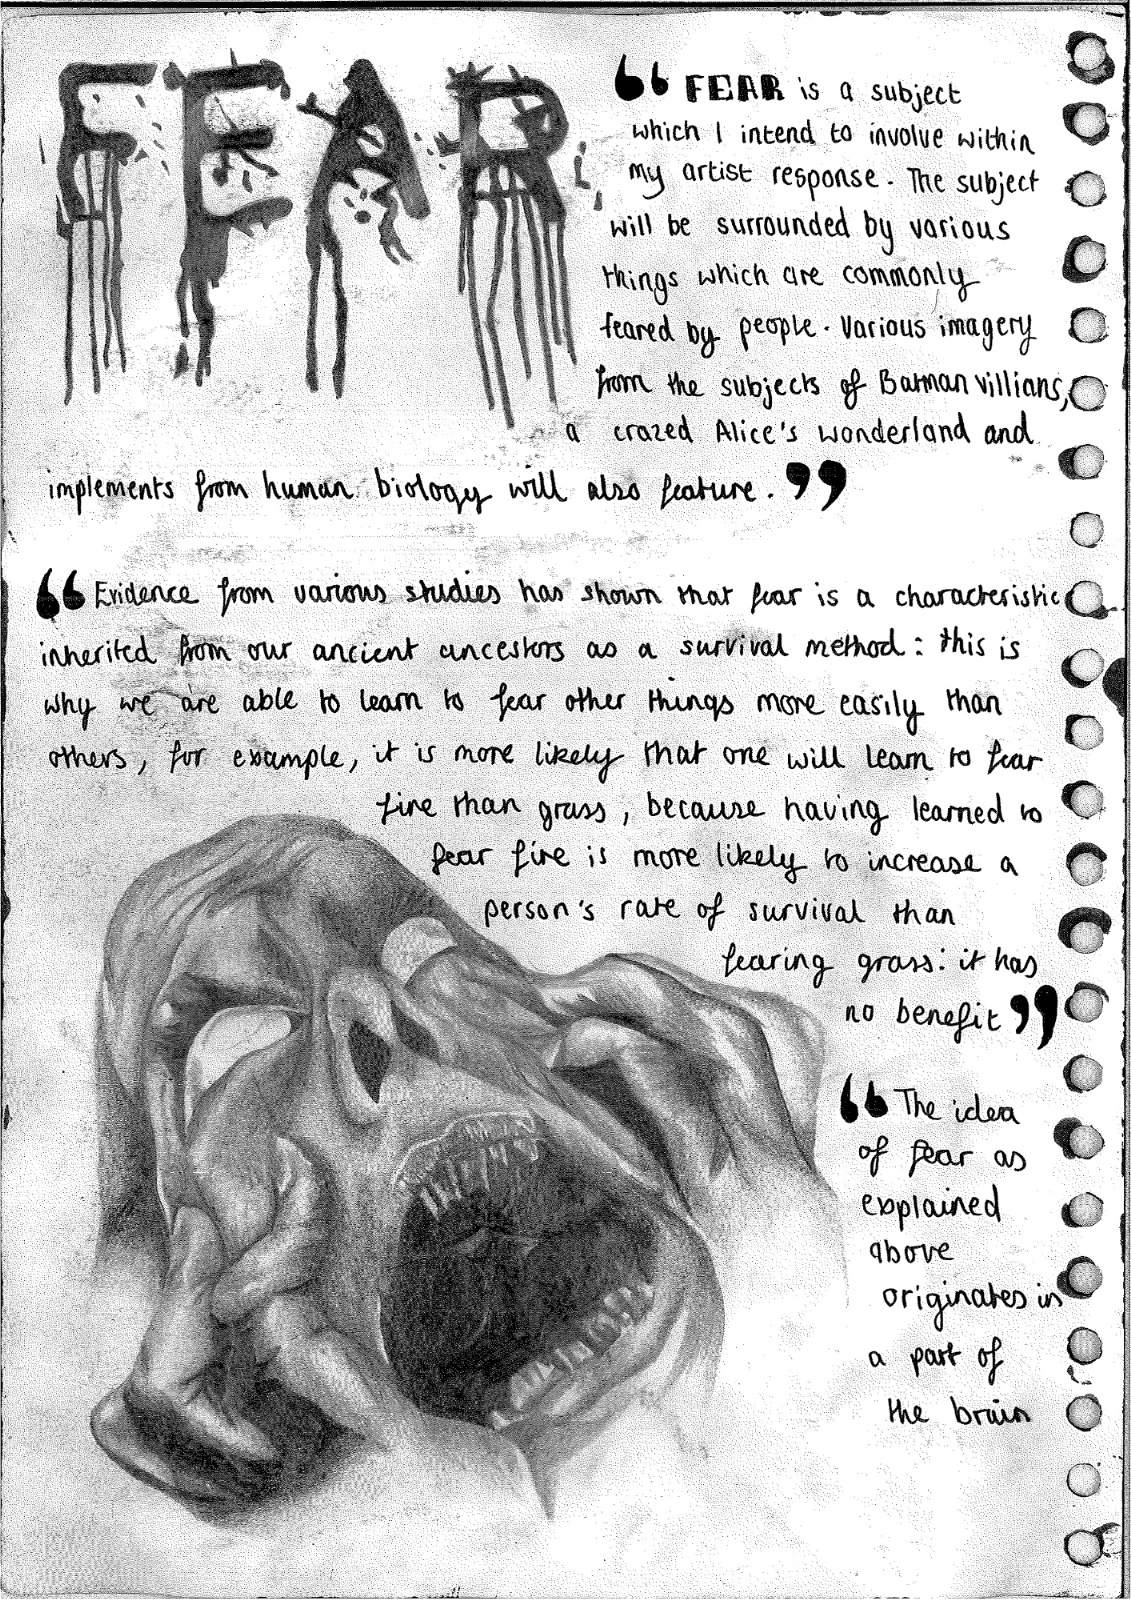 FEAR
“ FEAR is a subject
which I intend to involve within
my artist response. The subject
will be surrounded by various
things which are commonly
feared by people. Various imagery
from the subjects of Batman villians,
a crazed Alice's wonderland and
implements from human biology will also feature. ”
“ Evidence from various studies has shown that fear is a characteristic
inherited from our ancient ancestors as a survival method: this is
why we are able to learn to fear other things more easily than
others, for example, it is more likely that one will learn to fear
fire than grass, because having learned to
fear fire is more likely to increase a
person's rate of survival than
fearing grass: it has
no benefit ”
“ The idea
of fear as
explained
above
originates in
a part of
the brain